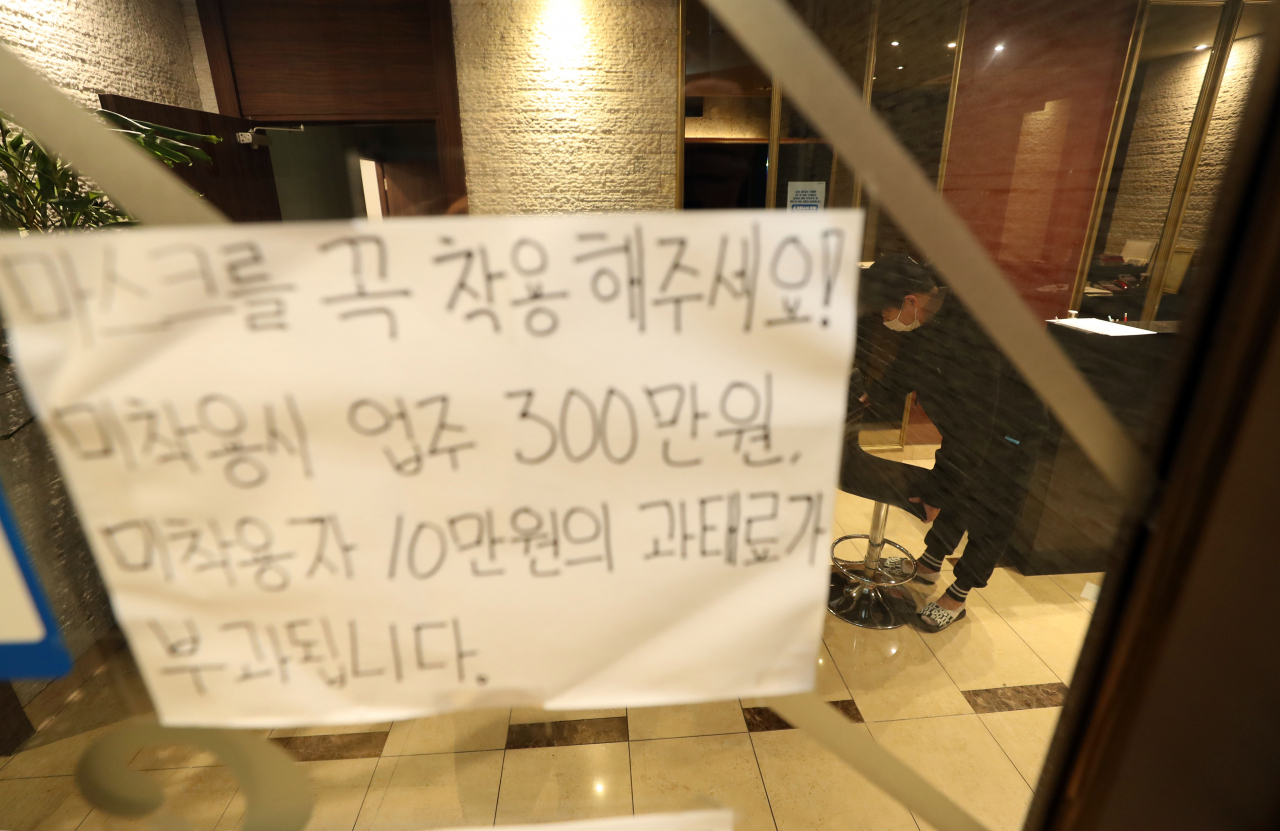 마스크를 꼭 착용해주세요!
미착용시 업주 300만원,
미착용자 10만원의 과태료가
부과됩니다.